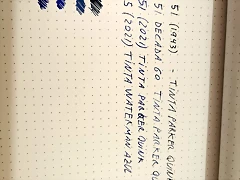 51 (1943) - TINTA PARKER QUINK
51 DECADA 60 TINTA PARKER QU
51 (2021) TINTA PARKER QUINK
5 (2021) TINTA WATERMAN AZUL